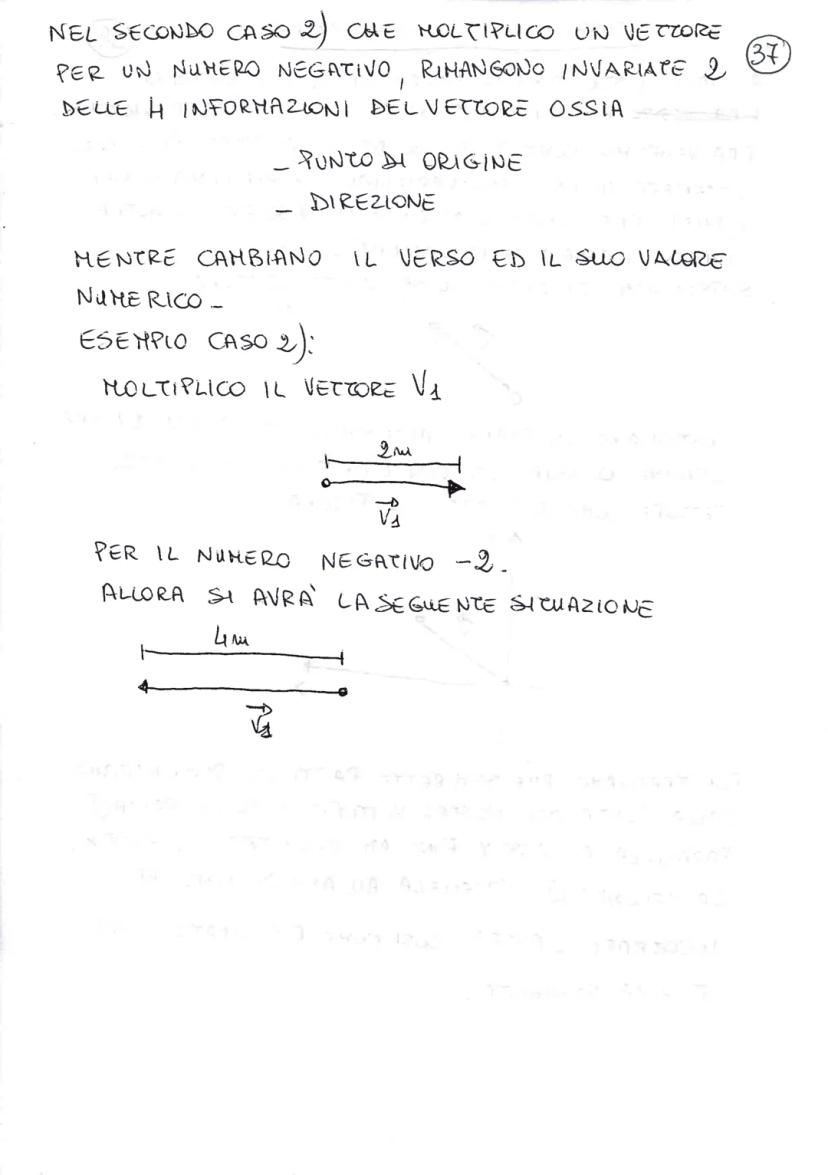 NEL SECONDO CASO 2) CHE MOLTIPLICO UN VETTORE
37
PER UN NUMERO NEGATIVO, RIMANGONO INVARIATE 2
DELLE 4 INFORMAZIONI DEL VETTORE OSSIA
- PUNTO DI ORIGINE
- DIREZIONE
MENTRE CAMBIANO IL VERSO ED IL SUO VALORE
NUMERICO -
ESEMPIO CASO 2):
MOLTIPLICO IL VETTORE V1
2m
V1
PER IL NUMERO NEGATIVO -2.
ALLORA SI AVRÀ LA SEGUENTE SITUAZIONE
4m
V1